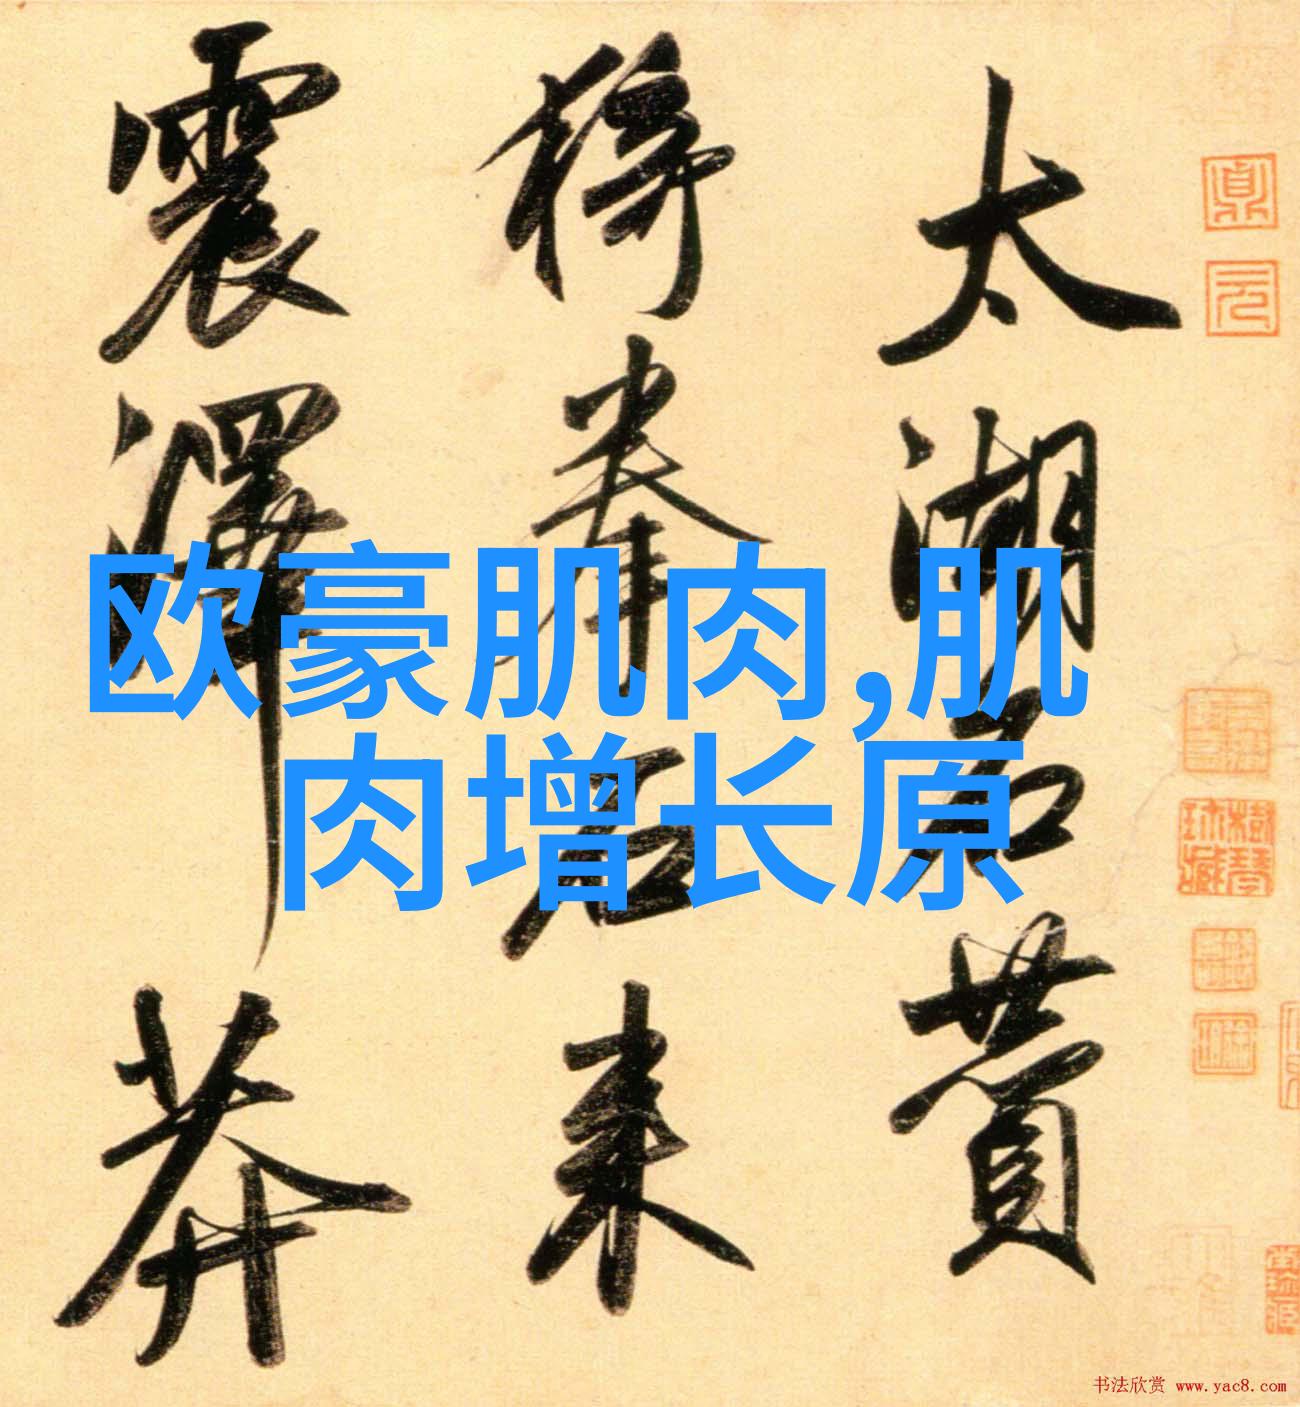 太湖石贊
猗拳石来
震澤莽
欧豪肌肉,肌
肉增长原
书法欣赏 www.yac8.com